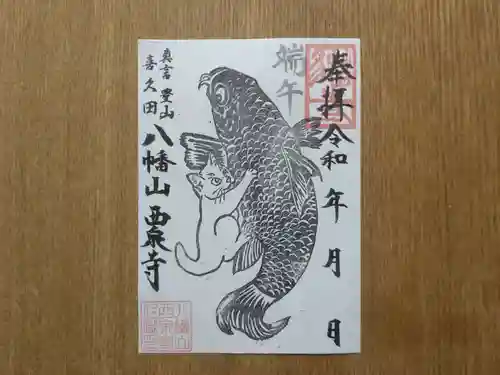 奉拝令和 年 月 日
端午
真言 豊山
喜久田
八幡山 西泉寺